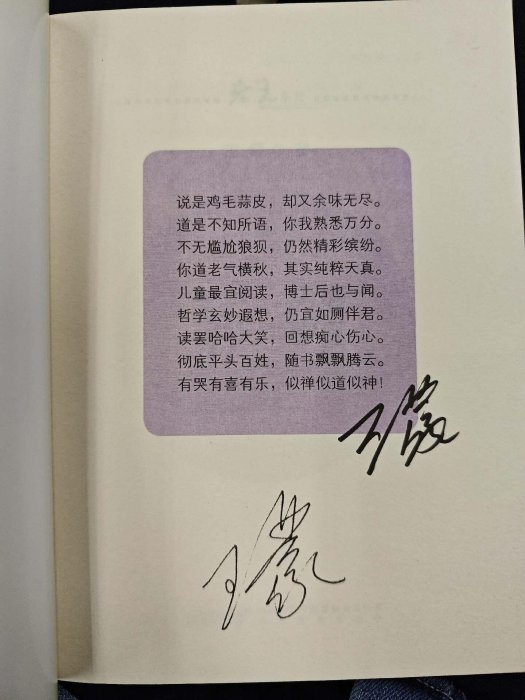 说是鸡毛蒜皮，却又余味无尽。
道是不知所语，你我熟悉万分。
不无尴尬狼狈，仍然精彩缤纷。
你道老气横秋，其实纯粹天真。
儿童最宜阅读，博士后也与闻。
哲学玄妙遐想，仍宜如厕伴君。
读罢哈哈大笑，回想痴心伤心。
彻底平头百姓，随书飘飘腾云。
有哭有喜有乐，似禅似道似神！
王蒙
王蒙